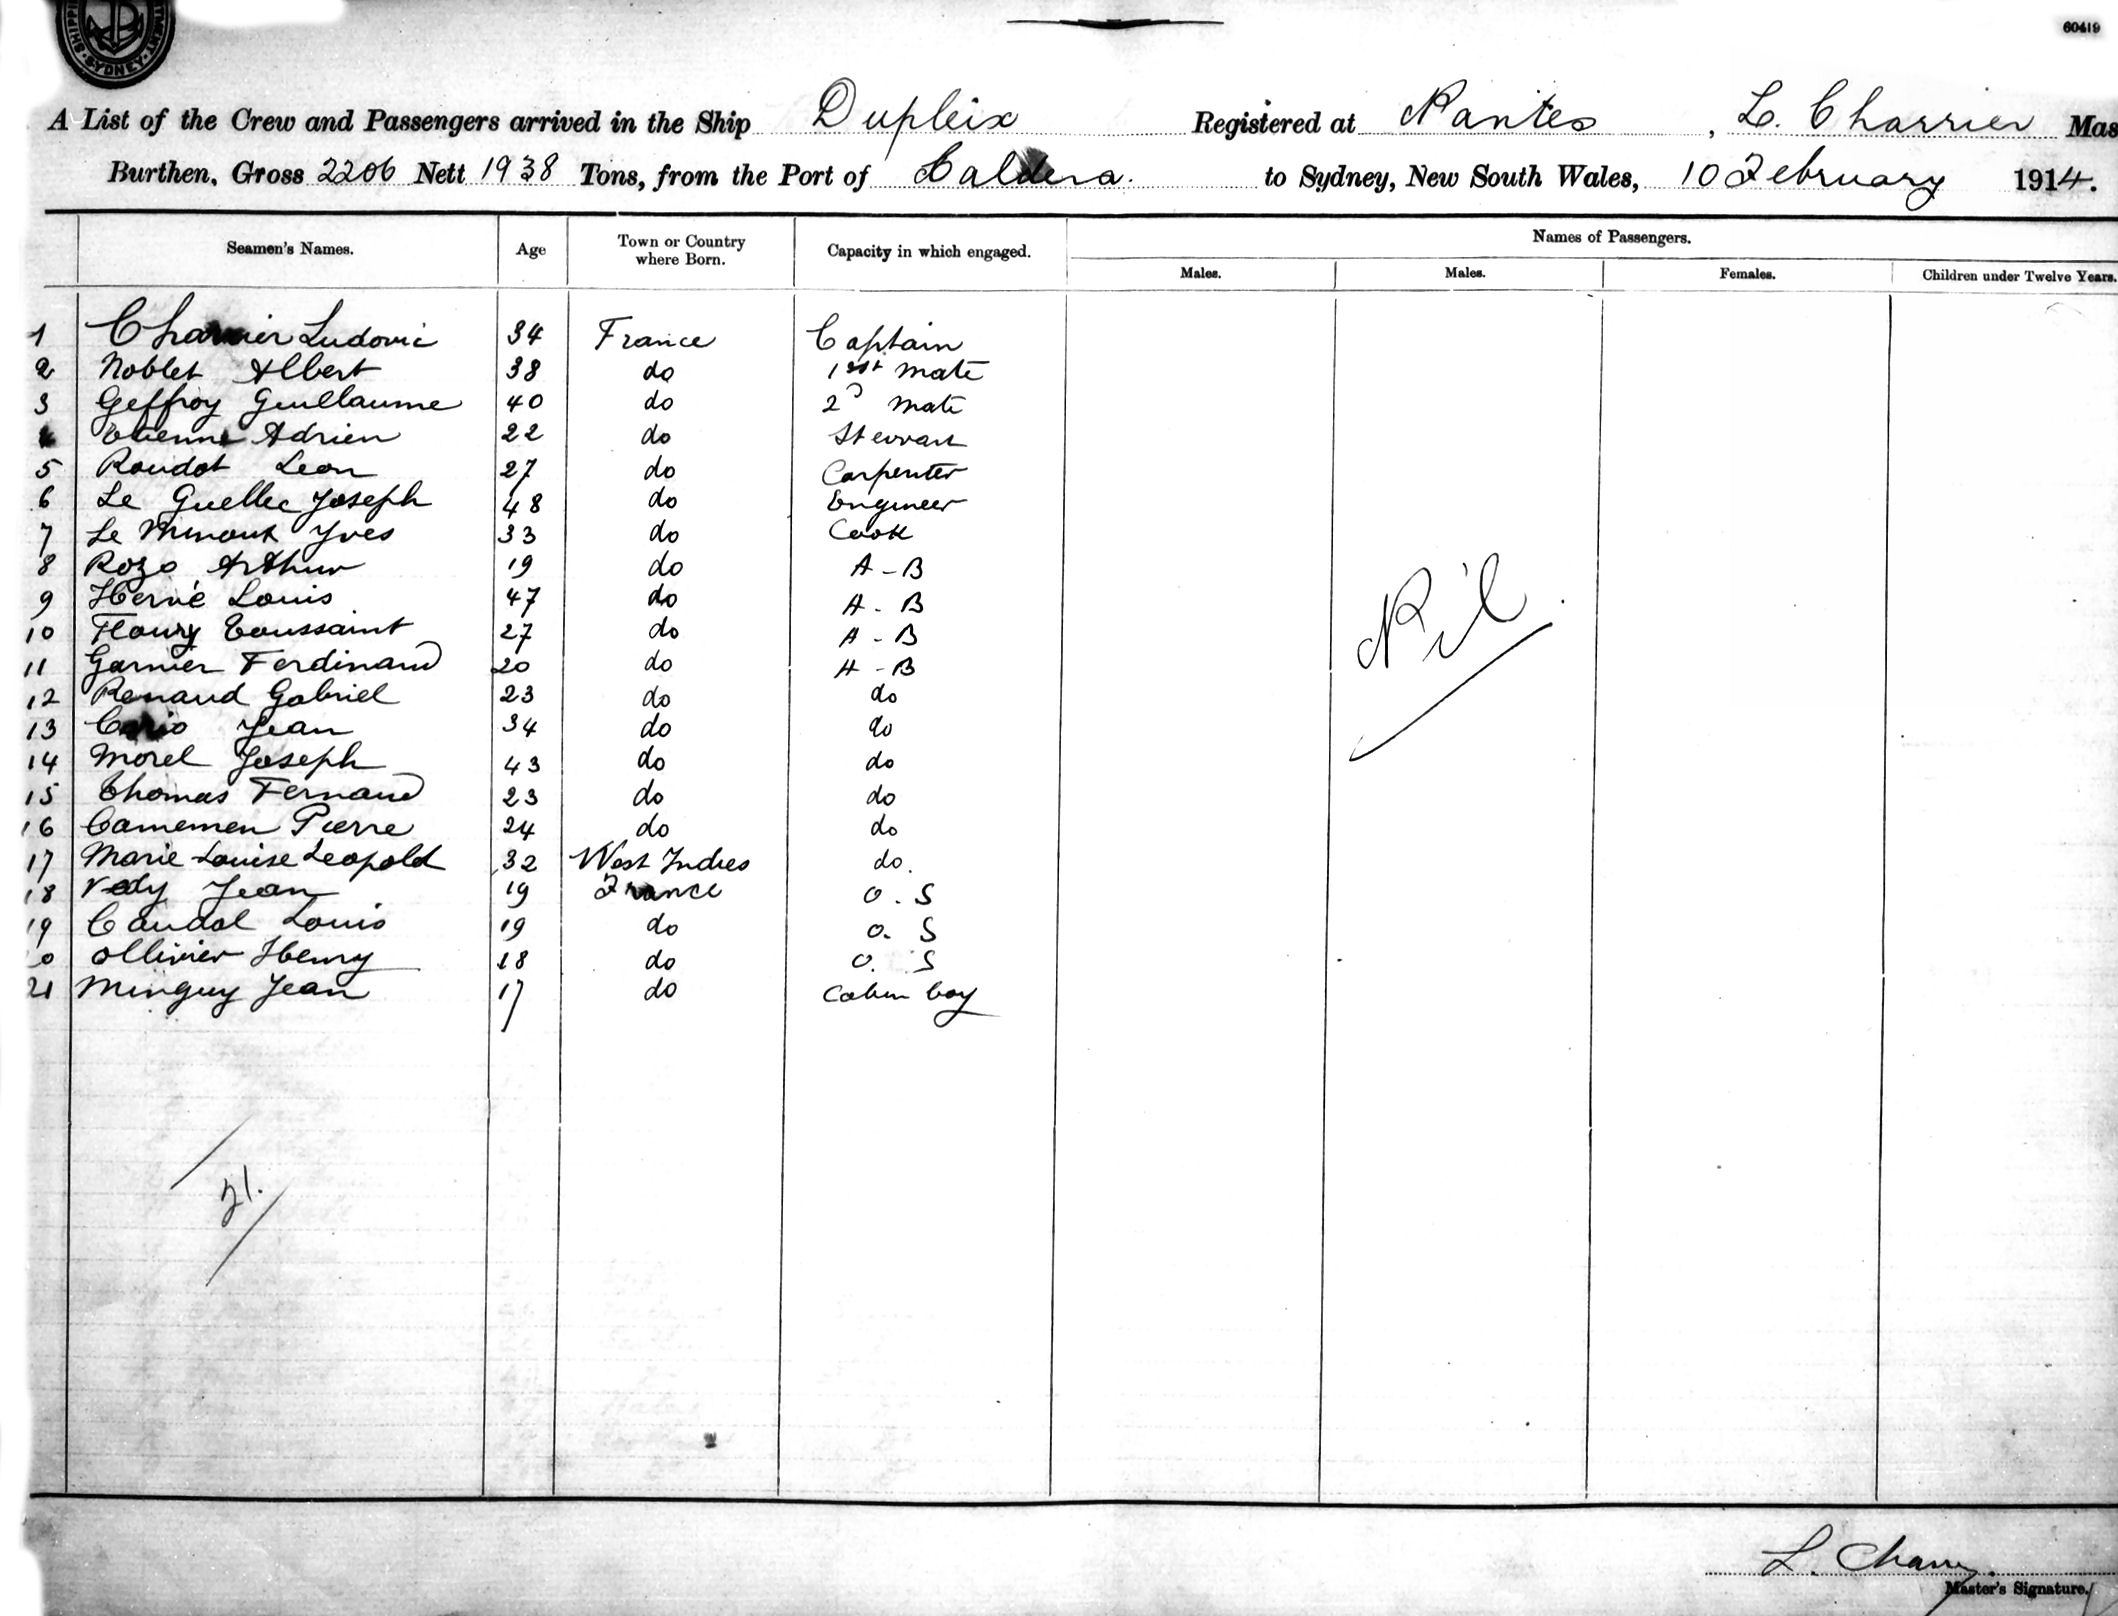 60419
SYDNEY
A List of the Crew and Passengers arrived in the Ship Dupleix Registered at Nantes, L. Charrier Mas
Burthen, Gross 2206 Nett 1938 Tons, from the Port of Caldera. to Sydney, New South Wales, 10 February 1914.
Seamen's Names. Age Town or Country where Born. Capacity in which engaged. Names of Passengers.
Males. Males. Females. Children under Twelve Years.
1 Charrier Ludovic 34 France Captain
2 Noblet Albert 38 do 1st mate
3 Geffroy Guillaume 40 do 2d mate
Etienne Adrien 22 do Stewart
5 Roudot Leon 27 do Carpenter
6 Le Guellec Joseph 48 do Engineer
7 Le Minoux Yves 33 do Cook
8 Rozo Arthur 19 do A-B
9 Hervé Louis 47 do A-B
10 Floury Toussaint 27 do A-B
11 Garnier Ferdinand 20 do A-B
12 Renaud Gabriel 23 do do
13 Jean 34 do do
14 Morel Joseph 43 do do
15 Thomas Fernand 23 do do
16 Camemen Pierre 24 do do
17 Marie-Louise Leopold 32 West Indies do.
18 Vedy Jean 19 France O.S
19 Caudal Louis 19 do O.S
20 Ollivier Henry 18 do O.S
21 Minguy Jean 17 do Cabin boy
Nil
21.
L. Charrier
Master's Signature.